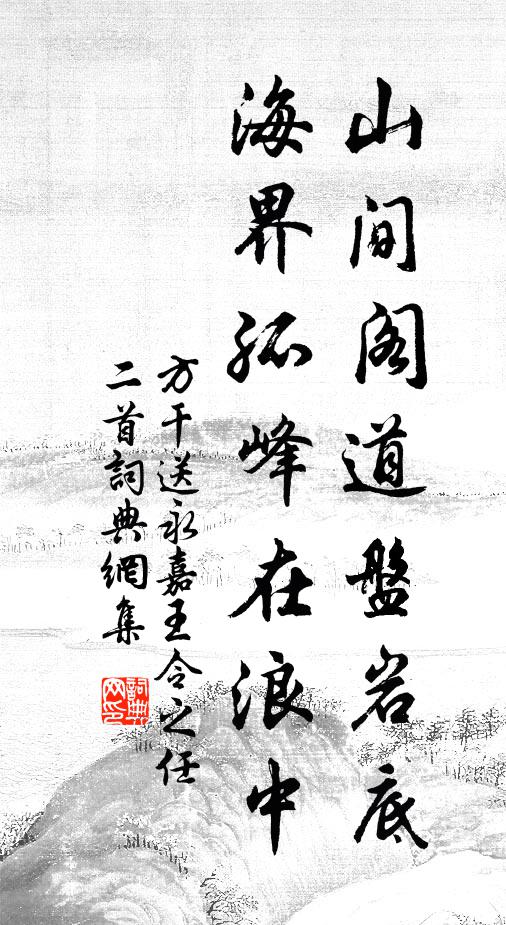 山间阁道盤岩底
海界孤峰在浪中
方干送永嘉王令之任
二首詞典網集
詞典網印